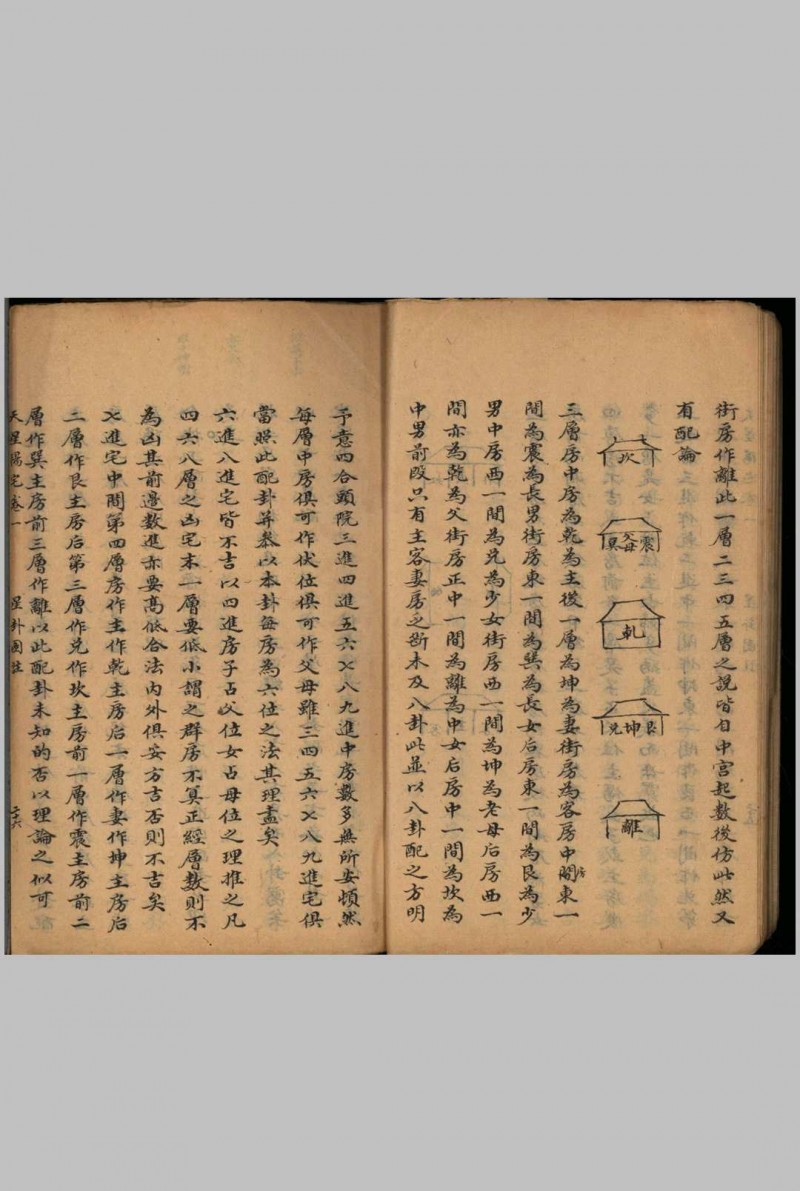 街房作離此一層二三四五層之說皆自中宮起數後仿此然又
有配論
坎
巽父母震
乾
兌坤艮
離
三層房中房為乾為主後一層為坤為妻街房為客房中房東一
間為震為長男街房東一間為巽為長女后房東一間為艮為少
男中房西一間為兌為少女街房西一間為坤為老母后房西一
間亦為乾為父街房正中一間為離為中女后房中一間為坎為
中男前段只有主客妻房之斷未及八卦此並以八卦配之方明
予意四合頭院三進四進五六乂八九進中房數多無所安頓然
每層中房俱可作伏位俱可作父母雖三四五六乂八九進宅俱
當照此配卦并叅以本卦每房為六位之法其理盡矣
六進八進宅皆不吉以四進房子占父位女占母位之理推之凡
四六八層之凶宅本一層要低小謂之群房不算正經層數則不
為凶其前邊數進亦要高低合法內外俱安方吉否則不吉矣
乂進宅中間第四層房作主作乾主房后一層作妻作坤主房后
二層作艮主房后第三層作兌作坎主房前一層作震主房前二
層作巽主房前三層作離以此配卦未知的否以理論之似可
天星陽宅卷一 星卦圖註 二六